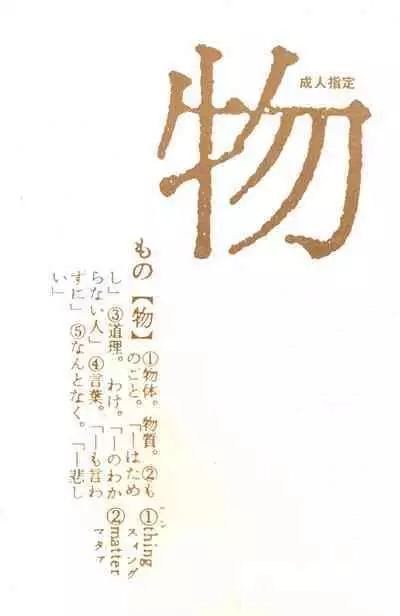 物
成人指定
もの【物】①物体。物質。②も
のごと。「―はため
し」③道理。わけ。「―のわか
らない人」④言葉。「―も言わ
ずに」⑤なんとなく。「―悲し
い」
①thing
スィング
②matter
マタア